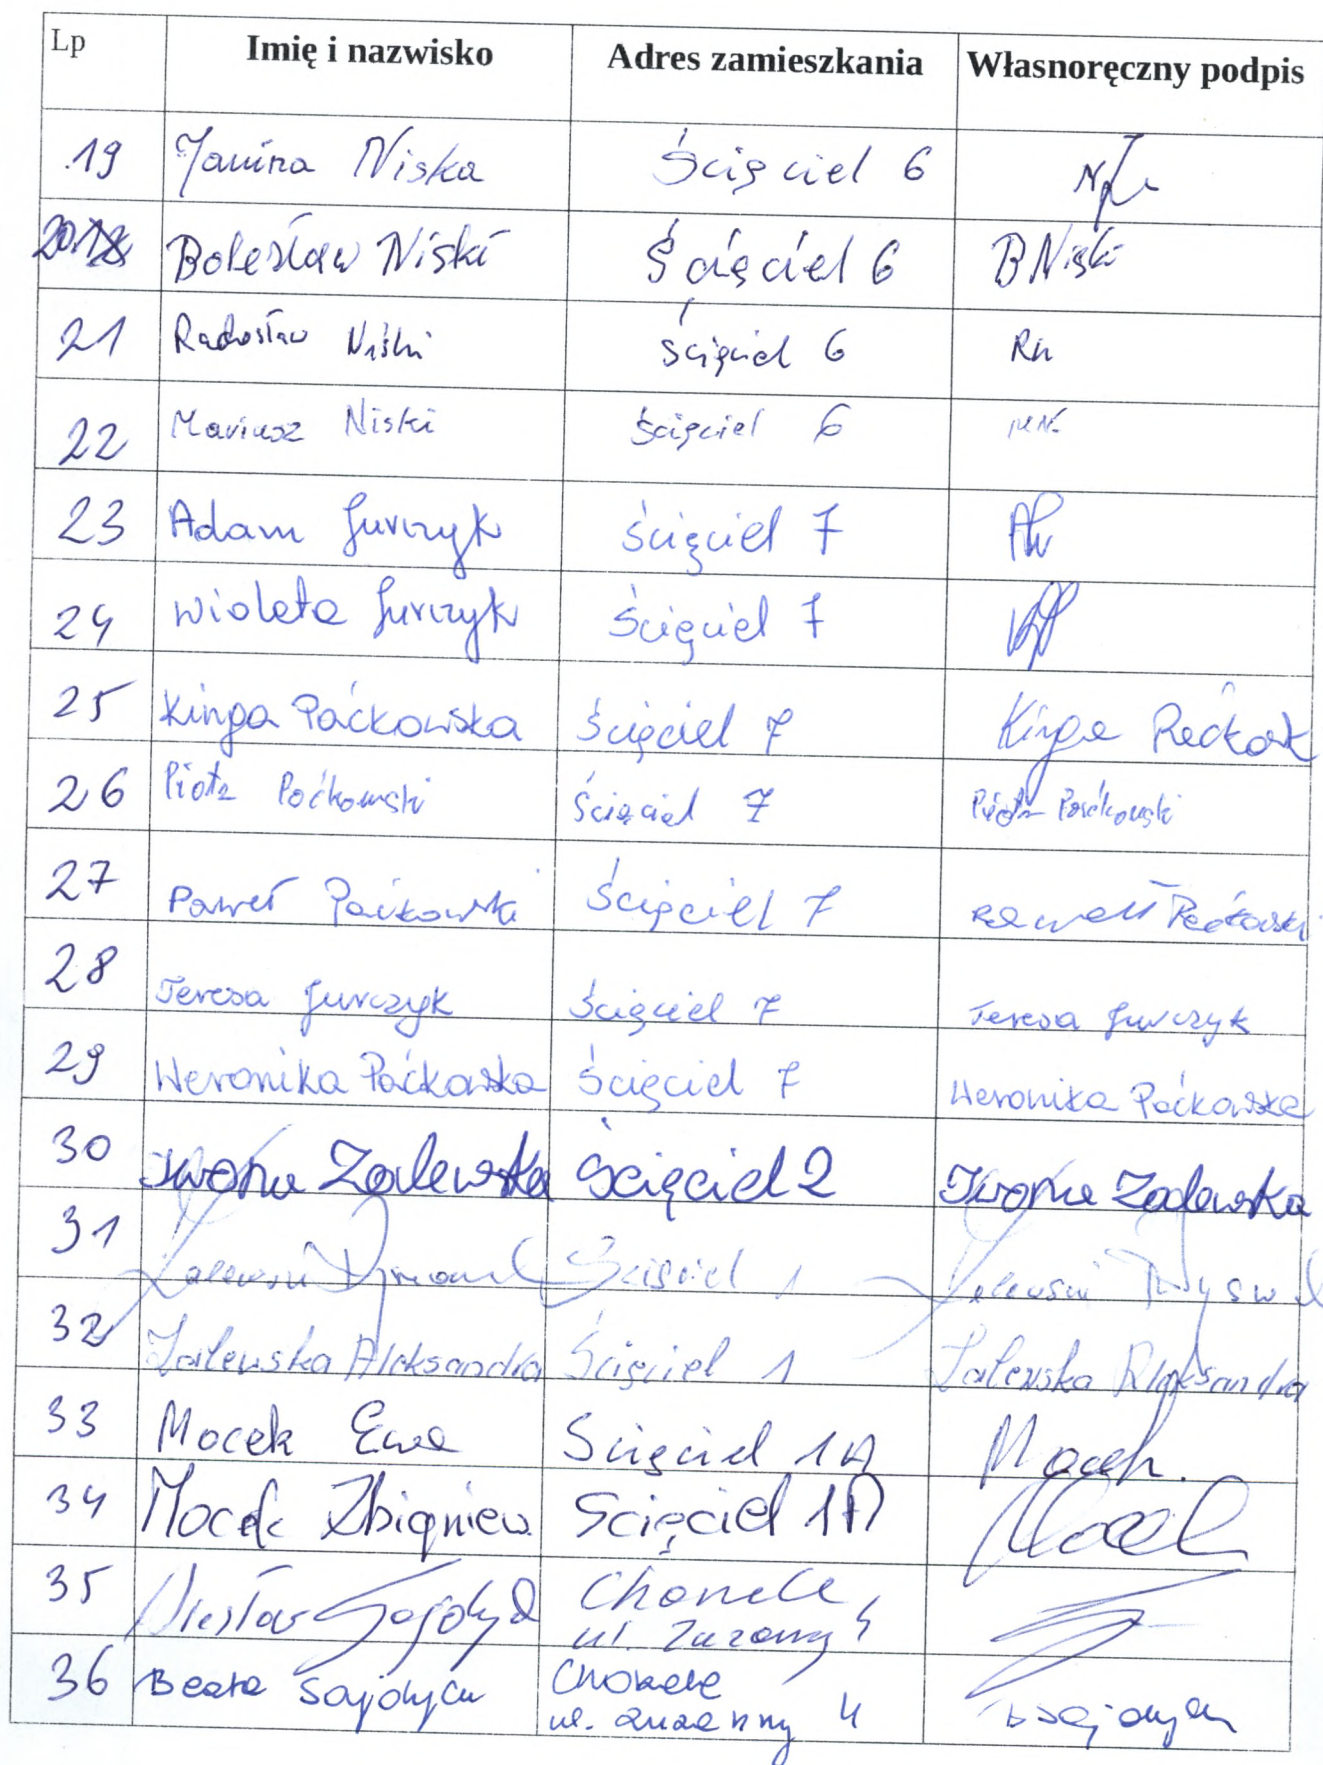 Lp Imię i nazwisko Adres zamieszkania Własnoręczny podpis
19 Janina Niska Ścięciel 6
20. Bolesław Niski Ścięciel 6 BNiski
21 Radosław Niski Ścięciel 6 RN
22 Mariusz Niski Ścięciel 6 MN
23 Adam Jurczyk Ścięciel 7
24 Wioleta Jurczyk Ścięciel 7
25 Kinga Paćkowska Ścięciel 7 Kinga
26 Piotr Paćkowski Ścięciel 7 Piotr Paćkowski
27 Paweł Paćkowski Ścięciel 7 Paćkowski
28 Teresa Jurczyk Ścięciel 7 Teresa Jurczyk
29 Weronika Paćkowska Ścięciel 7 Weronika Paćkowska
30 Iwona Zalewska Ścięciel 2 Iwona Zalewska
31 Zalewski Ścięciel 1 Zalewski
32 Zalewska Aleksandra Ścięciel 1 Zalewska Aleksandra
33 Mocek Ewa Ścięciel 1A Mocek.
34 Mocek Zbigniew Ścięciel 1A Mocek
35 Wiesław Chorzele
ul. 4
36 Beata Chorzele
ul. 4